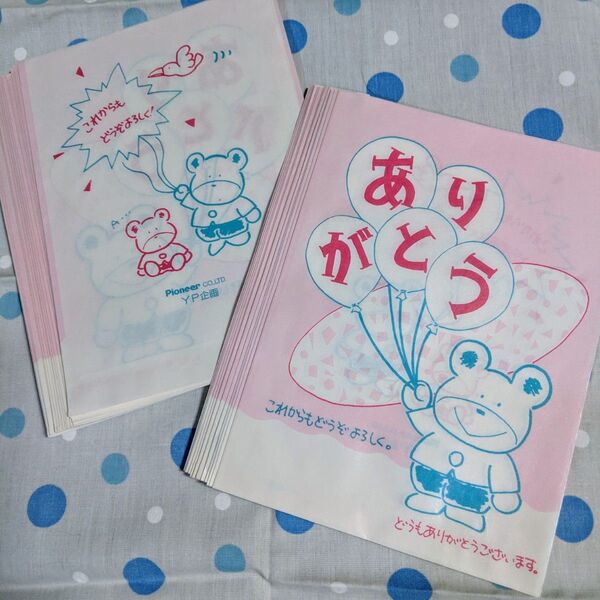 これからも
どうぞよろしく!
A...
Pioneer CO.LTD
YP企画
あり
がとう
これからもどうぞよろしく。
どうもありがとうございます。